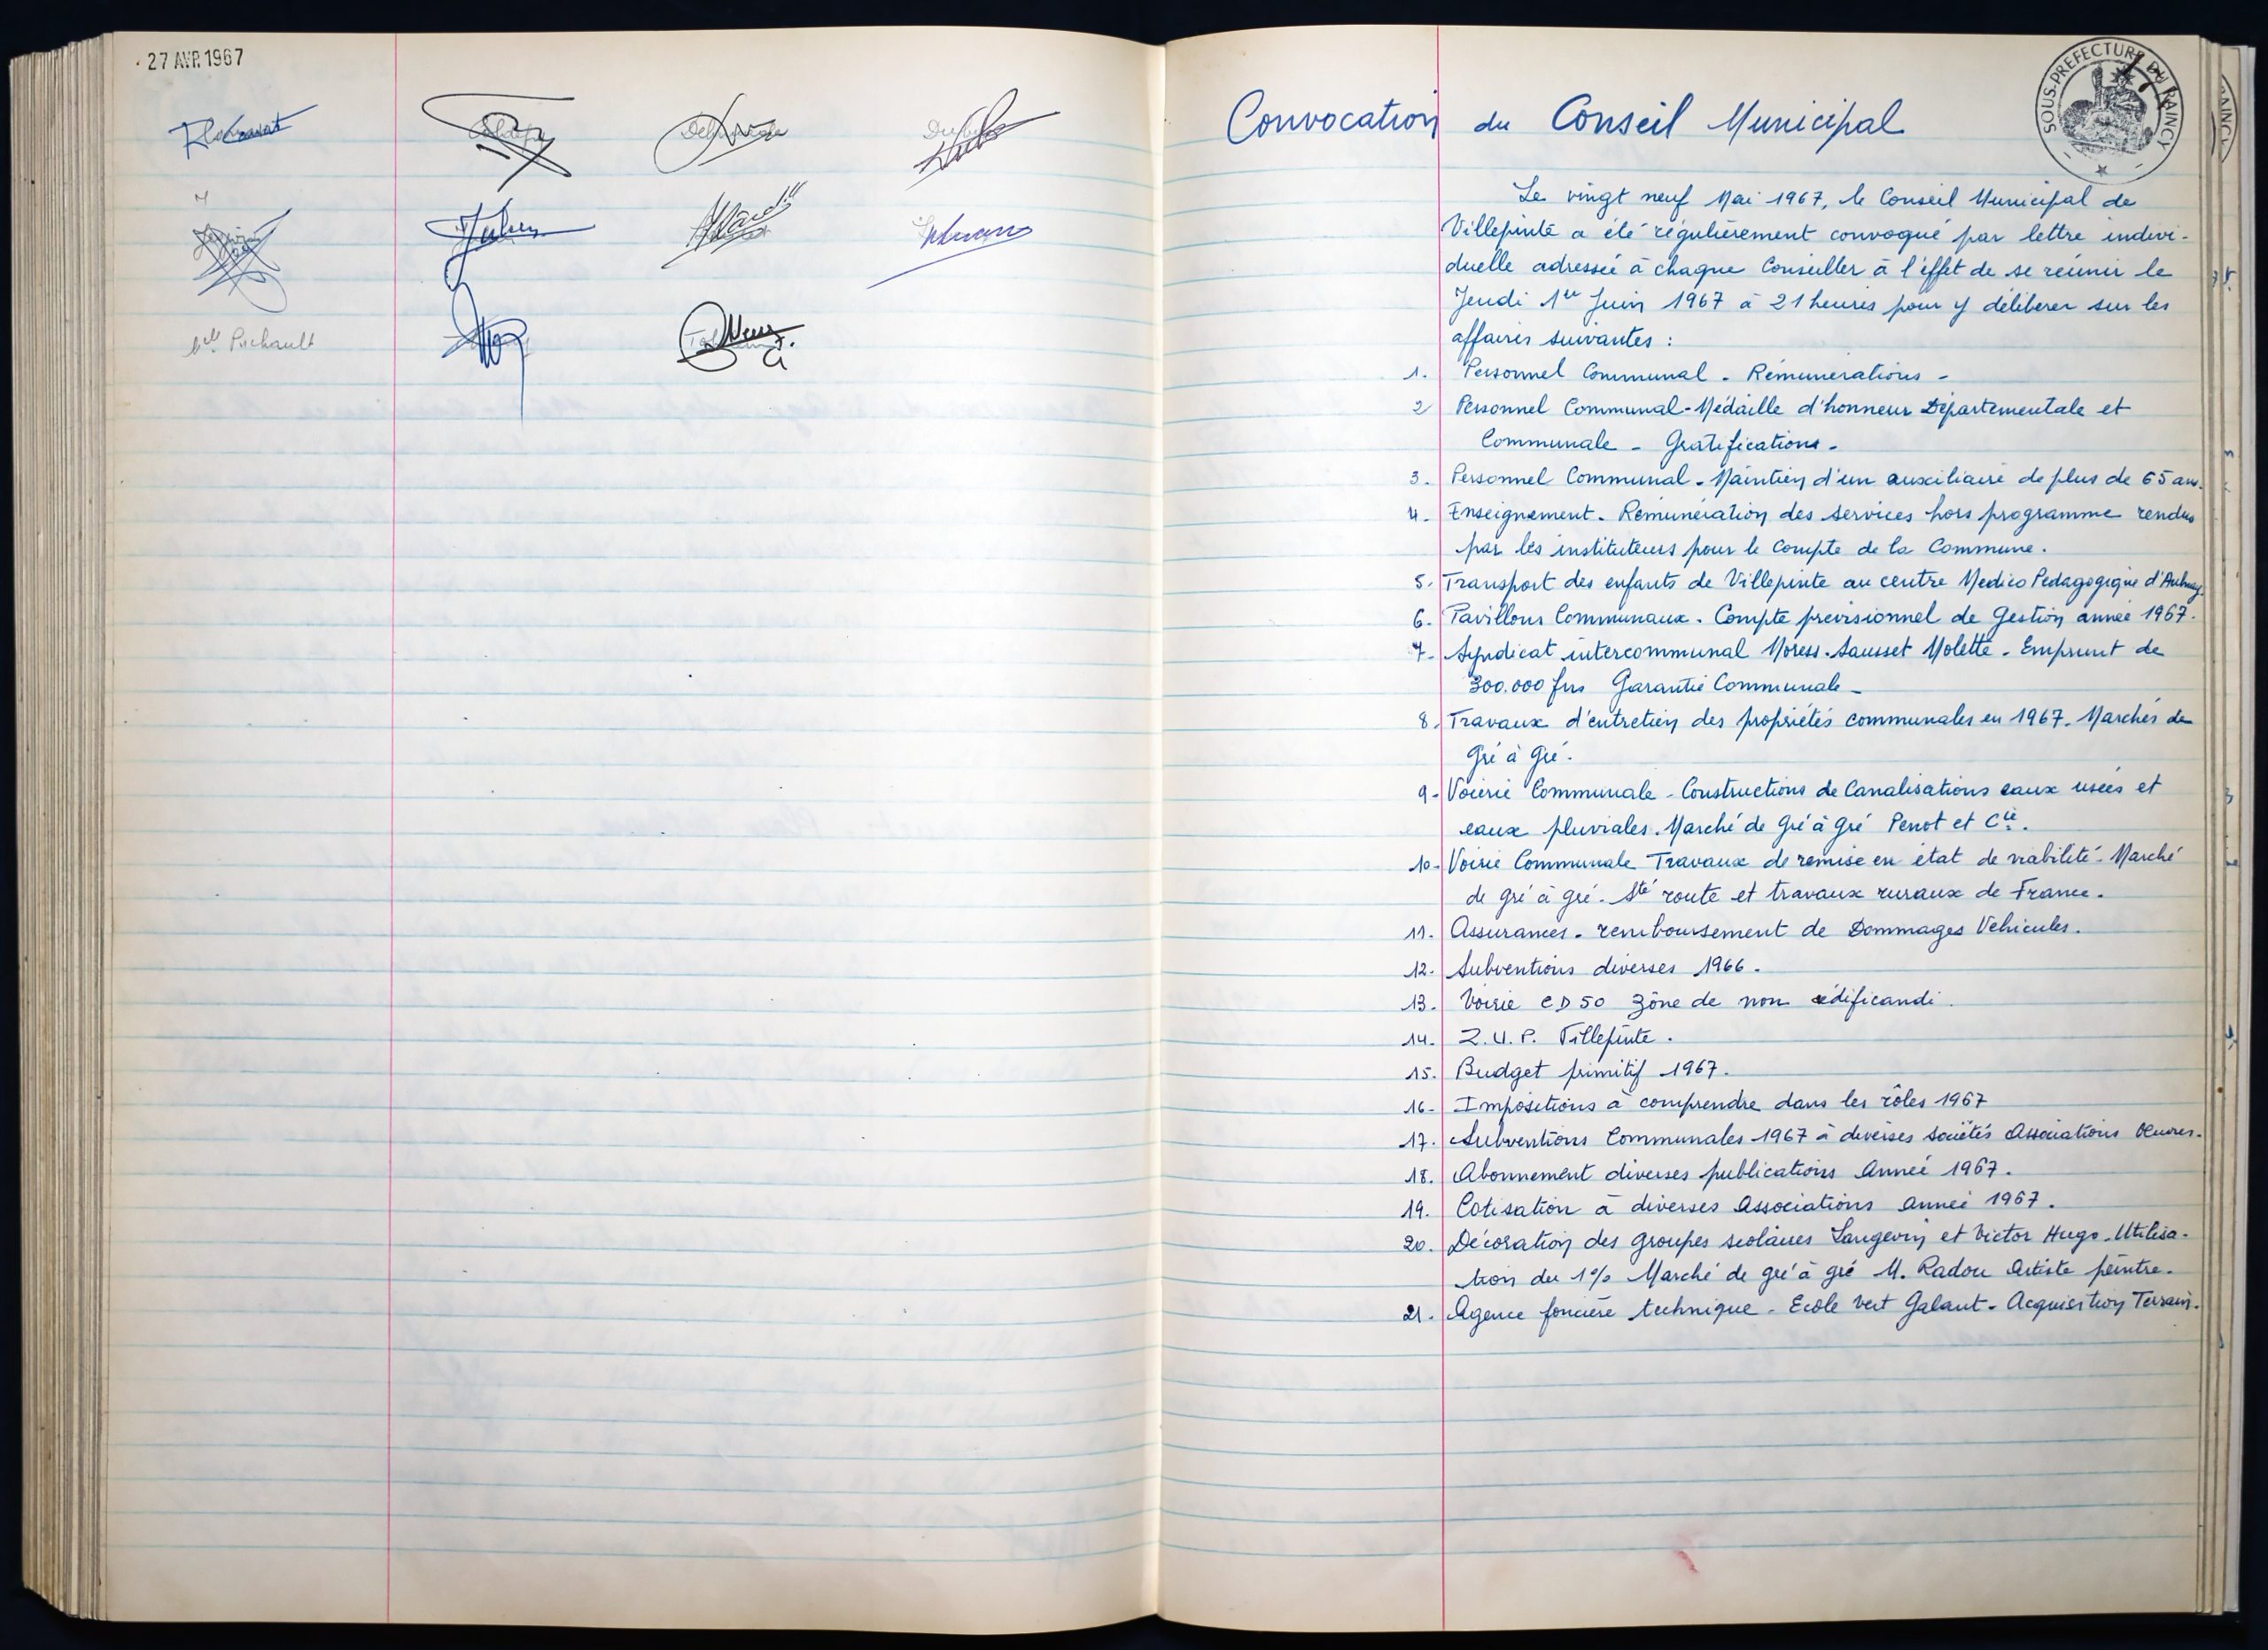 27 AVR. 1967
Mlle Puchault
SOUS-PREFECTURE DU RAINCY
Convocation du Conseil Municipal
Le vingt neuf Mai 1967, le Conseil Municipal de
Villepinte a été régulièrement convoqué par lettre indivi-
duelle adressée à chaque Conseiller à l'effet de se réunir le
Jeudi 1er Juin 1967 à 21 heures pour y délibérer sur les
affaires suivantes :
1. Personnel Communal - Rémunérations -
2 Personnel Communal - Médaille d'honneur Départementale et
Communale - Gratifications -
3. Personnel Communal - Maintien d'un auxiliaire de plus de 65 ans.
4. Enseignement - Rémunération des services hors programme rendus
par les instituteurs pour le compte de la Commune.
5. Transport des enfants de Villepinte au centre Medico Pedagogique d'Aulnay.
6. Pavillons Communaux. Compte previsionnel de Gestion année 1967.
7. Syndicat intercommunal Moress. Sausset Molette - Emprunt de
300.000 frs Garantie Communale -
8. Travaux d'entretien des propriétés communales en 1967. Marchés de
Gré à Gré.
9. Voierie Communale - Constructions de Canalisations eaux usées et
eaux pluviales. Marché de Gré à Gré Penot et Cie.
10. Voirie Communale Travaux de remise en état de viabilité - Marché
de gré à gré. Sté route et travaux ruraux de France.
11. Assurances - remboursement de Dommages Vehicules.
12. Subventions diverses 1966.
13. Voirie CD 50 Zône de non œdificandi.
14. Z.U.P. Villepinte.
15. Budget primitif 1967.
16. Impositions à comprendre dans les rôles 1967
17. Subventions Communales 1967 à diverses sociétés Associations Oeuvres.
18. Abonnement diverses publications Année 1967.
19. Cotisation à diverses Associations année 1967.
20. Décoration des groupes scolaires Langevin et Victor Hugo. Utilisa-
tion du 1% Marché de gré à gré M. Radou Artiste peintre.
21. Agence foncière technique - Ecole Vert Galant - Acquisition Terrain.